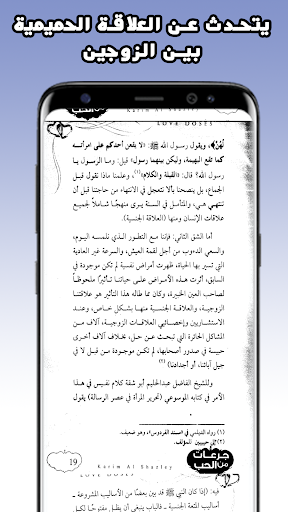 يتحدث عن العلاقة الحميمية
بين الزوجين
Karim Al Shazley
LOVE DOSES
لهُنَّ﴾، ويقول رسول الله ﷺ: «لا يقعن أحدكم على امرأته
كما تقع البهيمة، وليكن بينهما رسول» قيل: وما الرسول يا
رسول الله؟ قال: «القبلة والكلام»(١)، وعلمنا ماذا نقول قبل
الجماع، بل ينصحنا بألا نتعجل في الانتهاء من حاجتنا قبل أن
تنتهي هي، والمتأمل في السنة يرى منهجًا شاملًا لجميع
علاقات الإنسان ومنها (العلاقة الجنسية).
أما الشق الثاني: فإننا مع التطور الذي نلمسه اليوم،
والسعي الدءوب من أجل لقمة العيش، والسرعة غير العادية
التي تسير بها الحياة، ظهرت أمراض نفسية لم تكن موجودة في
السابق، أثرت هذه الأمراض على حياتنا تأثيرًا ملحوظًا
لصاحب العين الخبيرة، وكان مما طاله هذا التأثير هو علاقتنا
الزوجية، والعلاقة الجنسية منها بشكل خاص، وعند
الاستشاريين وإخصائيي العلاقات الزوجية، آلاف من
المشاكل الحائرة التي تبحث عن حل، وآلاف أخرى
حبيسة في صدور أصحابها، لم تكن موجودة من قبل لا في
جيل آبائنا، أو أجدادنا(٢)
وللشيخ الفاضل عبدالحليم أبو شقة كلام نفيس في هذا
الأمر في كتابه الموسوعي (تحرير المرأة في عصر الرسالة) يقول
(١) رواه الديلمي في مسند الفردوس، وهو ضعيف.
(٢) حبيبين للمؤلف.
19
جرعات
من الحب
Karim Al Shazley
LOVE DOSES
فيه: (إذا كان النبي ﷺ قد بين بعضًا من الأساليب المشروعة ـ
أساليب المتعة الجنسية ـ